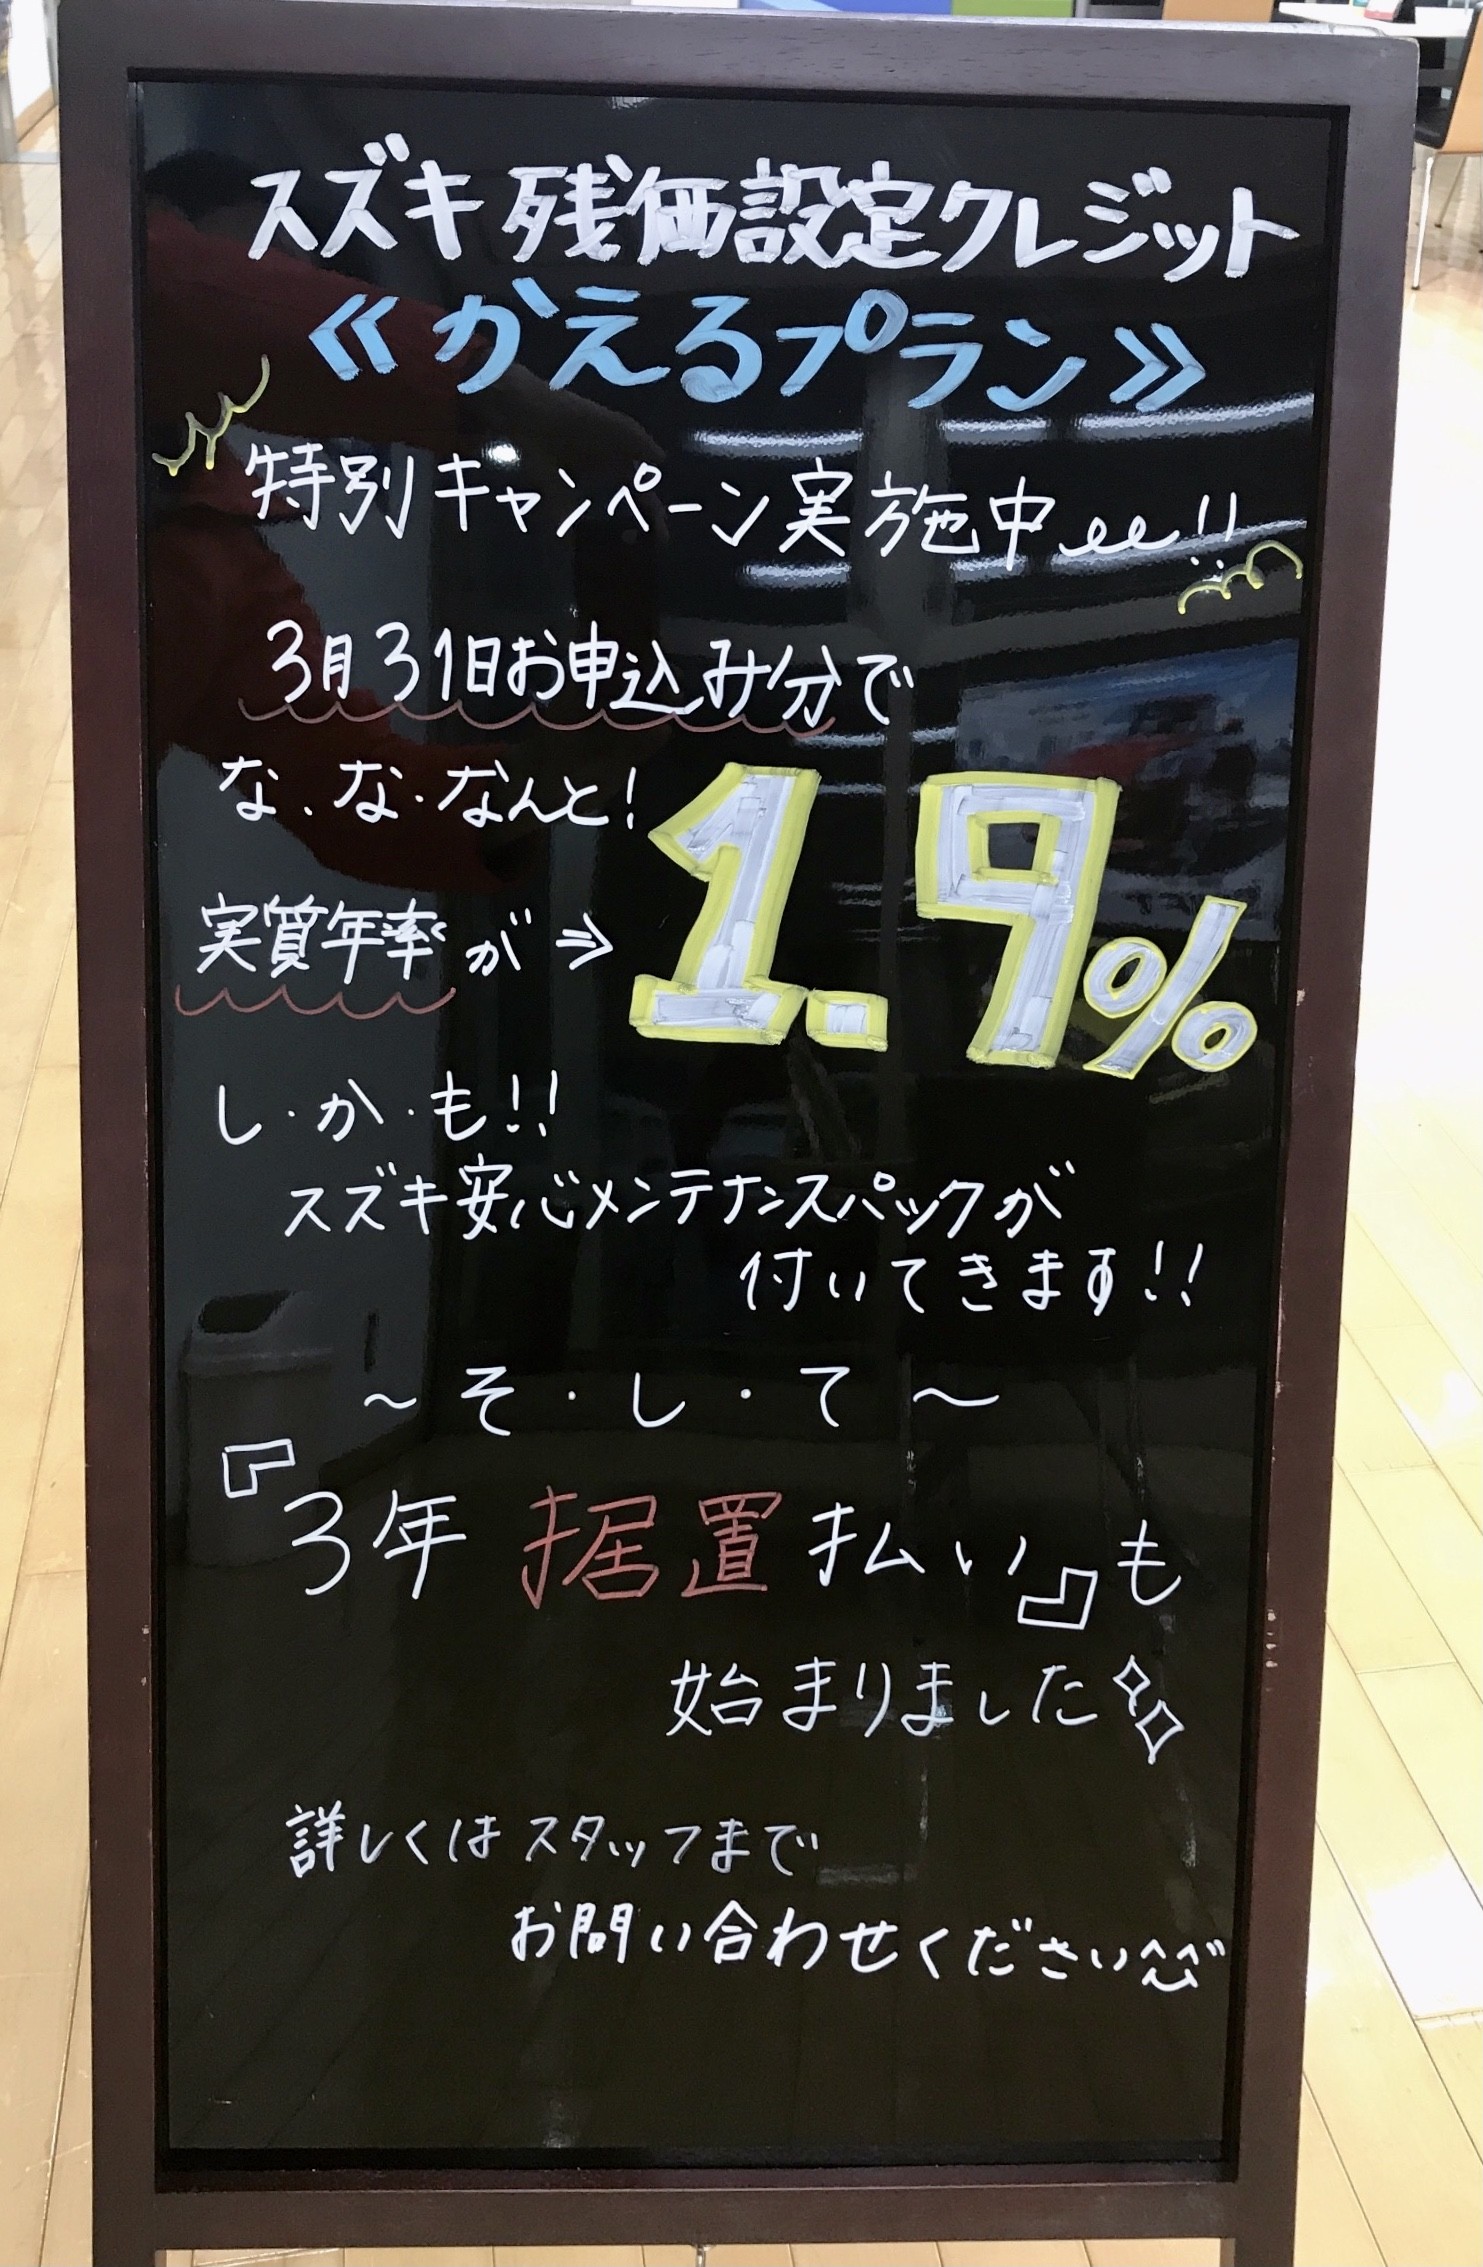 スズキ 残価設定クレジット
《かえるプラン》
特別キャンペーン実施中!!
3月31日お申込み分で
な、な・なんと!
1.9%
実質年率が⇒
し・か・も!!
スズキ安心メンテナンスパックが
付いてきます!!
～そ・し・て～
『3年 据置 払い』も
始まりました
詳しくはスタッフまで
お問い合わせください^^